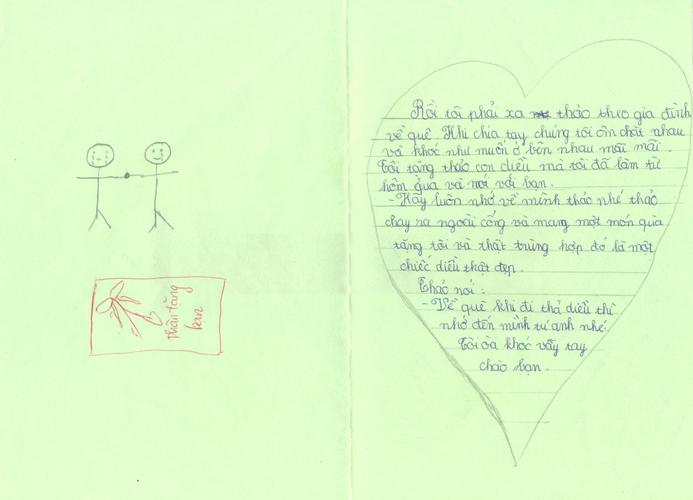 Thân tặng
bạn
Rồi tôi phải xa thảo theo gia đình
về quê. Khi chia tay chúng tôi ôm chặt nhau
và khóc như muốn ở bên nhau mãi mãi.
Tôi tặng thảo con diều mà tôi đã làm từ
hôm qua và nói với bạn.
- Hãy luôn nhớ về mình thảo nhé thảo
chạy ra ngoài cổng và mang một món quà
tặng tôi và thật trùng hợp đó là một
chiếc diều thật đẹp.
Thảo nói:
- Về quê khi đi thả diều thì
nhớ đến mình tú anh nhé.
Tôi oà khóc vẫy tay
chào bạn.